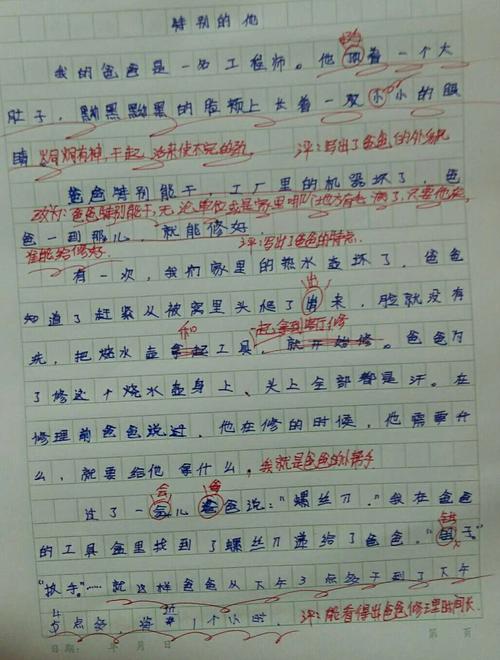 特别的他
我的爸爸是一名工程师。他顶着一个大
挺
肚子，黝黑黝黑的脸颊上长着一双小小的眼
睛 炯炯有神，干起活来使不完的劲 评：写出了爸爸的外貌
爸爸特别能干，工厂里的机器坏了，爸
改为：爸爸特别能干，无论单位或是家里哪个地方有毛病了，只要他在，
爸一到那儿，就能修好。
准能给修好。 评：写出了爸爸的特点。
有一次，我们家里的热水壶坏了，爸爸
出
知道了赶紧从被窝里头爬了出来，脸就没有
和 一起拿到客厅修
洗，把烧水壶拿起工具，就开始修。爸爸为
了修这个烧水壶身上、头上全部都是汗。在
修理前爸爸说过，他在修的时候，他需要什
么，就要给他拿什么。我就是爸爸的小帮手
会 爸
过了一会儿爸爸说：“螺丝刀。”我在爸爸
的工具盒里找到了螺丝刀递给了爸爸。“钳子。”
钳
“扳手。”……就这样爸爸从下午3点多干到了下午
5点多， 1个小时。 评：能看得出爸爸修理时间长
日期： 年 月 日 第 页